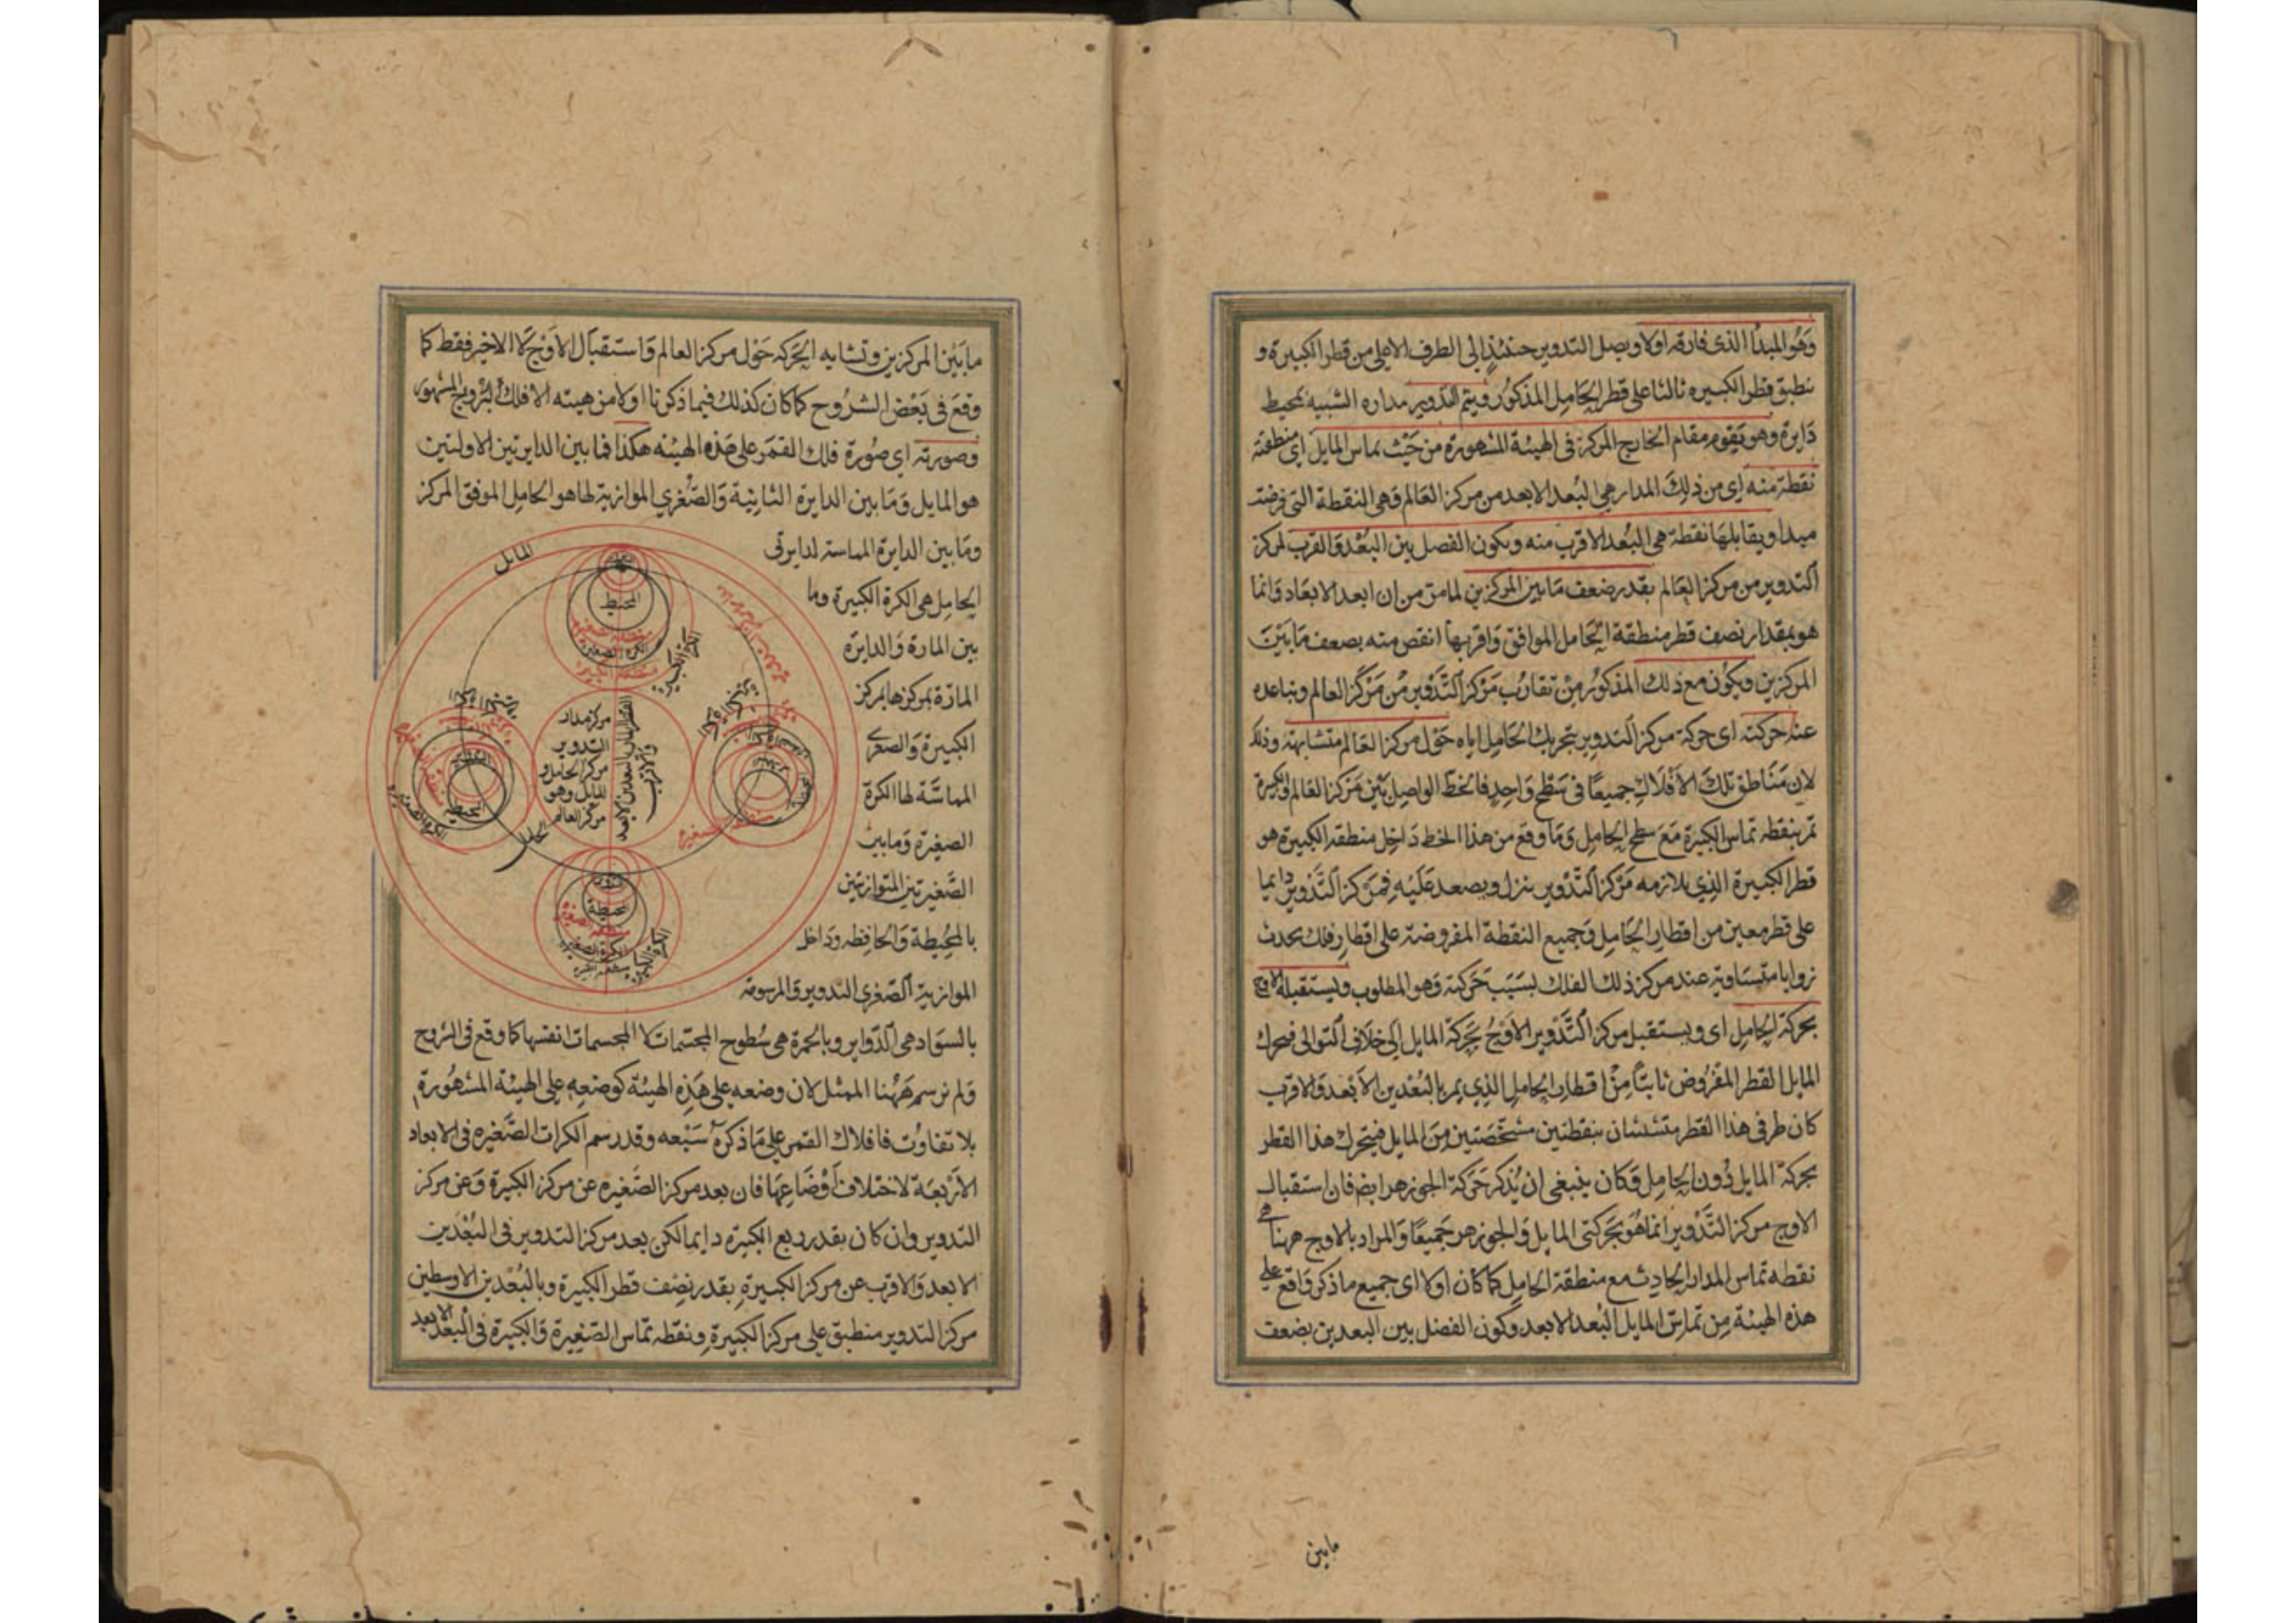 وهو المبدأ الذي فارقه اولا ويصل التدوير حينئذ الى الطرف الاعلى من قطر الكبيرة و
ينطبق قطر الكبيره ثالثا على قطر الحامل المذكور ويتم التدوير مداره الشبيه بمحيط
دايرة وهو يقوم مقام الخارج المركز في الهيئة المشهورة من حيث يماس المايل اي منطقته
نقطة منه اى من ذلك المدار هي البعد الابعد من مركز العالم وهي النقطة التي فرضت
مبدا ويقابلها نقطة هي البعد الاقرب منه ويكون الفصل بين البعد والقرب لمركز
التدوير من مركز العالم بقدر ضعف ما بين المركزين لما مر من ان ابعد الابعاد وانما
هو بمقدار نصف قطر منطقة الحامل الموافق واقربها انقص منه بضعف ما بين
المركزين ويكون مع ذلك المذكور من تقارب مركز التدوير من مركز العالم وتباعده
عنه حركته اى حركة مركز التدوير بتحريك الحامل اياه حول مركز العالم متشابهة وذلك
لان مناطق تلك الافلاك جميعا في سطح واحد فالخط الواصل بين مركز العالم والكبيرة
تمر بنقطه تماس الكبيرة مع سطح الحامل وما وقع من هذا الخط داخل منطقه الكبيرة هو
قطر الكبيرة الذي يلازمه مركز التدوير ينزل ويصعد عليه فمركز التدوير دايما
على قطر معين من اقطار الحامل وجميع النقطة المفروضة على اقطار فلك يحدث
زوايا متساوية عند مركز ذلك الفلك بسبب حركته وهو المطلوب ويستقبله الاوج
بحركة الحامل اى ويستقبل مركز التدوير الاوج بحركة المايل الى خلاف التوالى فيحرك
المايل القطر المفروض ثابتا من اقطار الحامل الذي يمر بالبعدين الابعد والاقرب
كان طرفي هذا القطر متشبثان بنقطتين مشخصتين من المايل فيتحرك هذا القطر
بحركة المايل دون الحامل وكان ينبغي ان يذكر حركة الجوزهر ايضا فان استقبال
الاوج مركز التدوير انما هو بحركتى المايل والجوزهر جميعا والمراد بالاوج ههنا هي
نقطه تماس المدار الحادث مع منطقة الحامل كما كان اولا اى جميع ما ذكر واقع على
هذه الهيئة من تماس المايل البعد الابعد وكون الفضل بين البعدين بضعف
مابين
ما بين المركزين وتشابه الحركه حول مركز العالم واستقبال الاوج لا الاخير فقط كما
وقع في بعض الشروح كما كان كذلك فيما ذكرنا اولا من هيئه الافلاك البروج المشهور
وصورته اى صورة فلك القمر على هذه الهيئه هكذا فما بين الدايرتين الاولتين
هو المايل وما بين الدايرة الثانية والصغري الموازية لها هو الحامل الموفق المركز
وما بين الدايرة المماسة لدايرتى
الحامل هي الكرة الكبيرة وما
بين المارة والدايرة
المارة بمركزها بمركز
الكبيرة والصغرى
المماسة لها الكرة
الصغيرة وما بين
الصغيرتين المتوازيتين
بالمحيطة والحافظه وداخل
الموازية الصغري التدوير والمرسومة
بالسواد هي الدواير وبالحمرة هي سطوح المجسمات لا المجسمات انفسها كما وقع في الشروح
ولم نرسم ههنا الممثل لان وضعه على هذه الهيئة كوضعه على الهيئة المشهورة
بلا تفاوت فافلاك القمر على ما ذكره سبعه وقد رسم الكرات الصغيره في الابعاد
الاربعة لاختلاف اوضاعها فان بعد مركز الصغيره عن مركز الكبيرة وعن مركز
التدوير وان كان بقدر ربع الكبيرة دايما لكن بعد مركز التدوير في البعدين
الابعد والاقرب عن مركز الكبيرة بقدر نصف قطر الكبيرة وبالبعدين الاوسطين
مركز التدوير منطبق على مركز الكبيرة ونقطه تماس الصغيرة والكبيرة في البعد الابعد
المايل
المحيط
الكرة الصغيره
الكرة الكبيرة
مركز مدار
التدوير
مركز الحامل و
المايل وهو
مركز العالم
القطر المار بالبعدين الابعد
والاقرب
الحامل
المحيطه
الكرة الصغيره
تدوير
محيطة
منطقه الصغيره
الكرة الصغيره
الكرة الكبيره
منطقه الصغيره